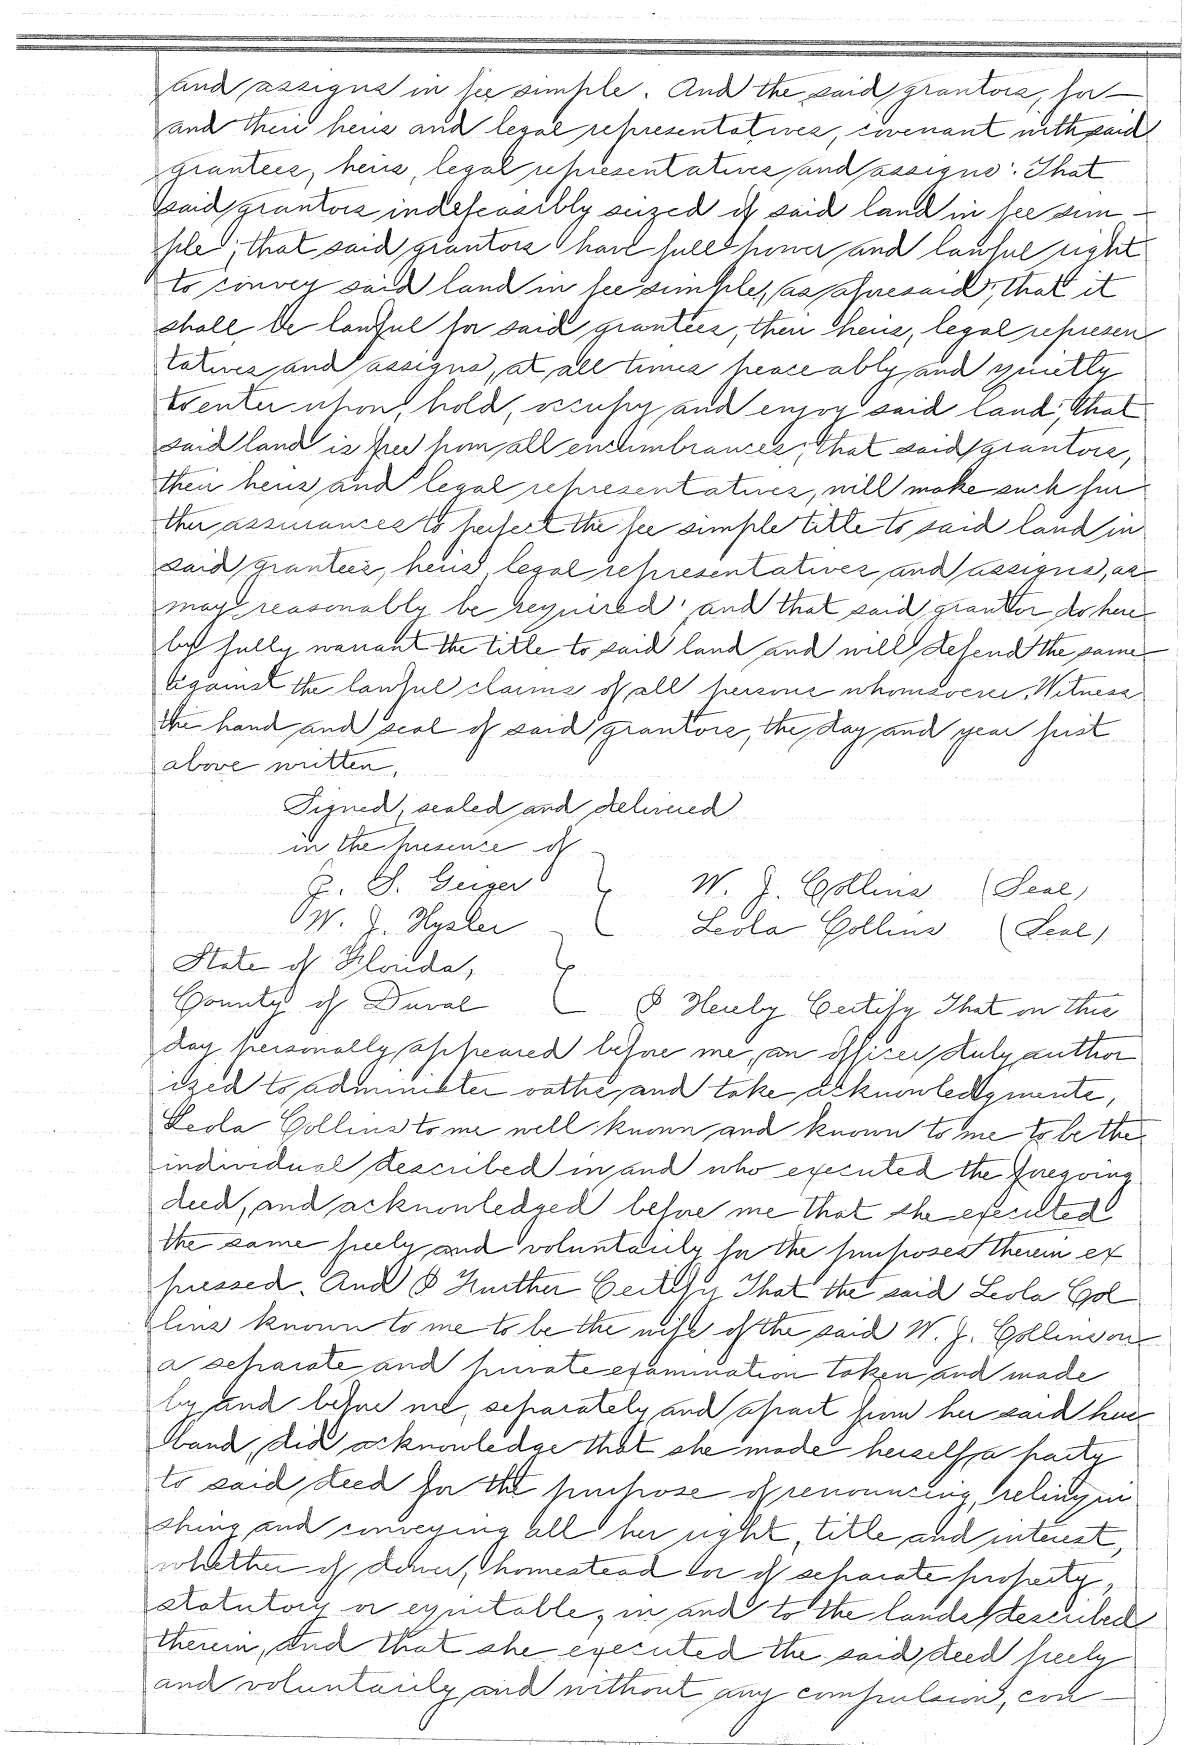 and assigns in fee simple. And the said grantors, for—
and their heirs and legal representatives, covenant with said
grantees, heirs, legal representatives and assigns: That
said grantors indefeasibly seized of said land in fee sim—
ple; that said grantors have full power and lawful right
to convey said land in fee simple, as aforesaid; that it
shall be lawful for said grantees, their heirs, legal represen
tatives and assigns, at all times peaceably and quietly
to enter upon, hold, occupy and enjoy said land; that
said land is free from all encumbrances; that said grantors,
their heirs and legal representatives, will make such fur
ther assurances to perfect the fee simple title to said land in
said grantees, heirs, legal representatives and assigns, as
may reasonably be required; and that said grantor do here
by fully warrant the title to said land and will defend the same
against the lawful claims of all persons whomsoever. Witness
the hand and seal of said grantors, the day and year first
above written.
Signed, sealed and delivered
in the presence of
J. S. Geiger W. J. Collins (Seal)
W. J. Hysler Leola Collins (Seal)
State of Florida,
County of Duval I Hereby Certify That on this
day personally appeared before me, an officer duly author
ized to administer oaths and take acknowledgments,
Leola Collins to me well known and known to me to be the
individual described in and who executed the foregoing
deed, and acknowledged before me that she executed
the same freely and voluntarily for the purposes therein ex
pressed. And I Further Certify That the said Leola Col
lins known to me to be the wife of the said W. J. Collins on
a separate and private examination taken and made
by and before me, separately and apart from her said hus
band, did acknowledge that she made herself a party
to said deed for the purpose of renouncing, relinqui
shing and conveying all her right, title and interest,
whether of dower, homestead or of separate property,
statutory or equitable, in and to the lands described
therein, and that she executed the said deed freely
and voluntarily and without any compulsion, con—